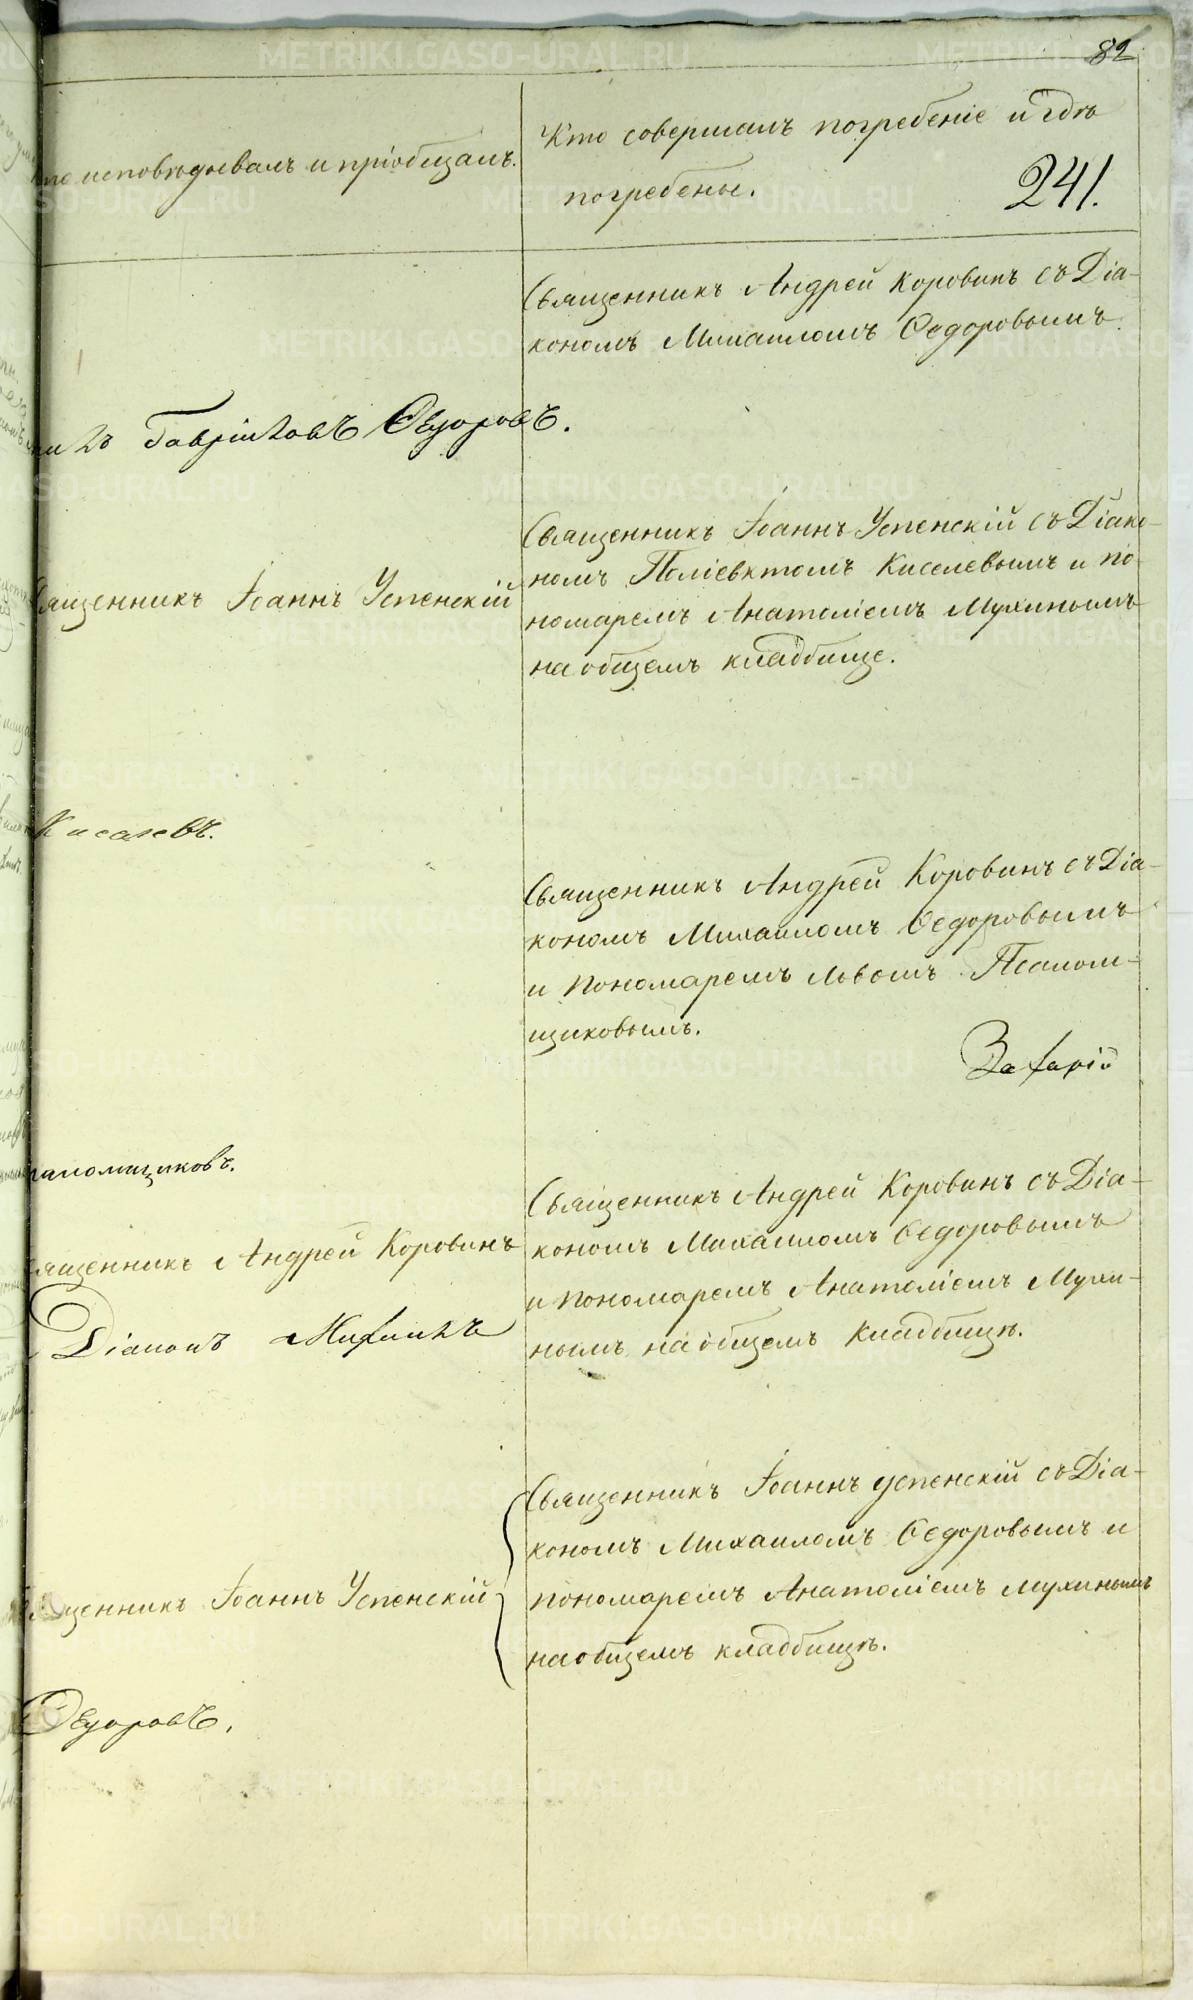 82
исповѣдывалъ и пріобщалъ.
Кто совершалъ погребеніе и гдѣ
погребены.
241.
Священникъ Андрей Коровинъ съ Діа-
кономъ Михаиломъ Ѳедоровымъ.
Гавріиловъ Ѳедоровъ.
Священникъ Іоаннъ Успенскій съ Діако-
номъ Поліевктомъ Киселевымъ и по-
номаремъ Анатоліемъ Мухинымъ
на общемъ кладбище.
священникъ Іоаннъ Успенскій
Киселевъ.
Священникъ Андрей Коровинъ съ Діа-
кономъ Михаиломъ Ѳедоровымъ
и Пономаремъ Львомъ Псалом-
щиковымъ.
Захарій
саломщиковъ.
Священникъ Андрей Коровинъ съ Діа-
кономъ Михаиломъ Ѳедоровымъ
и пономаремъ Анатоліемъ Мухи-
нымъ на общемъ кладбищѣ.
ященникъ Андрей Коровинъ
Діаконъ Михаилъ
Священникъ Іоаннъ Успенскій съ Діа-
кономъ Михаиломъ Ѳедоровымъ и
пономаремъ Анатоліемъ Мухинымъ
на общемъ кладбищѣ.
ященникъ Іоаннъ Успенскій
Ѳедоровъ.
METRIKI.GASO-URAL.RU